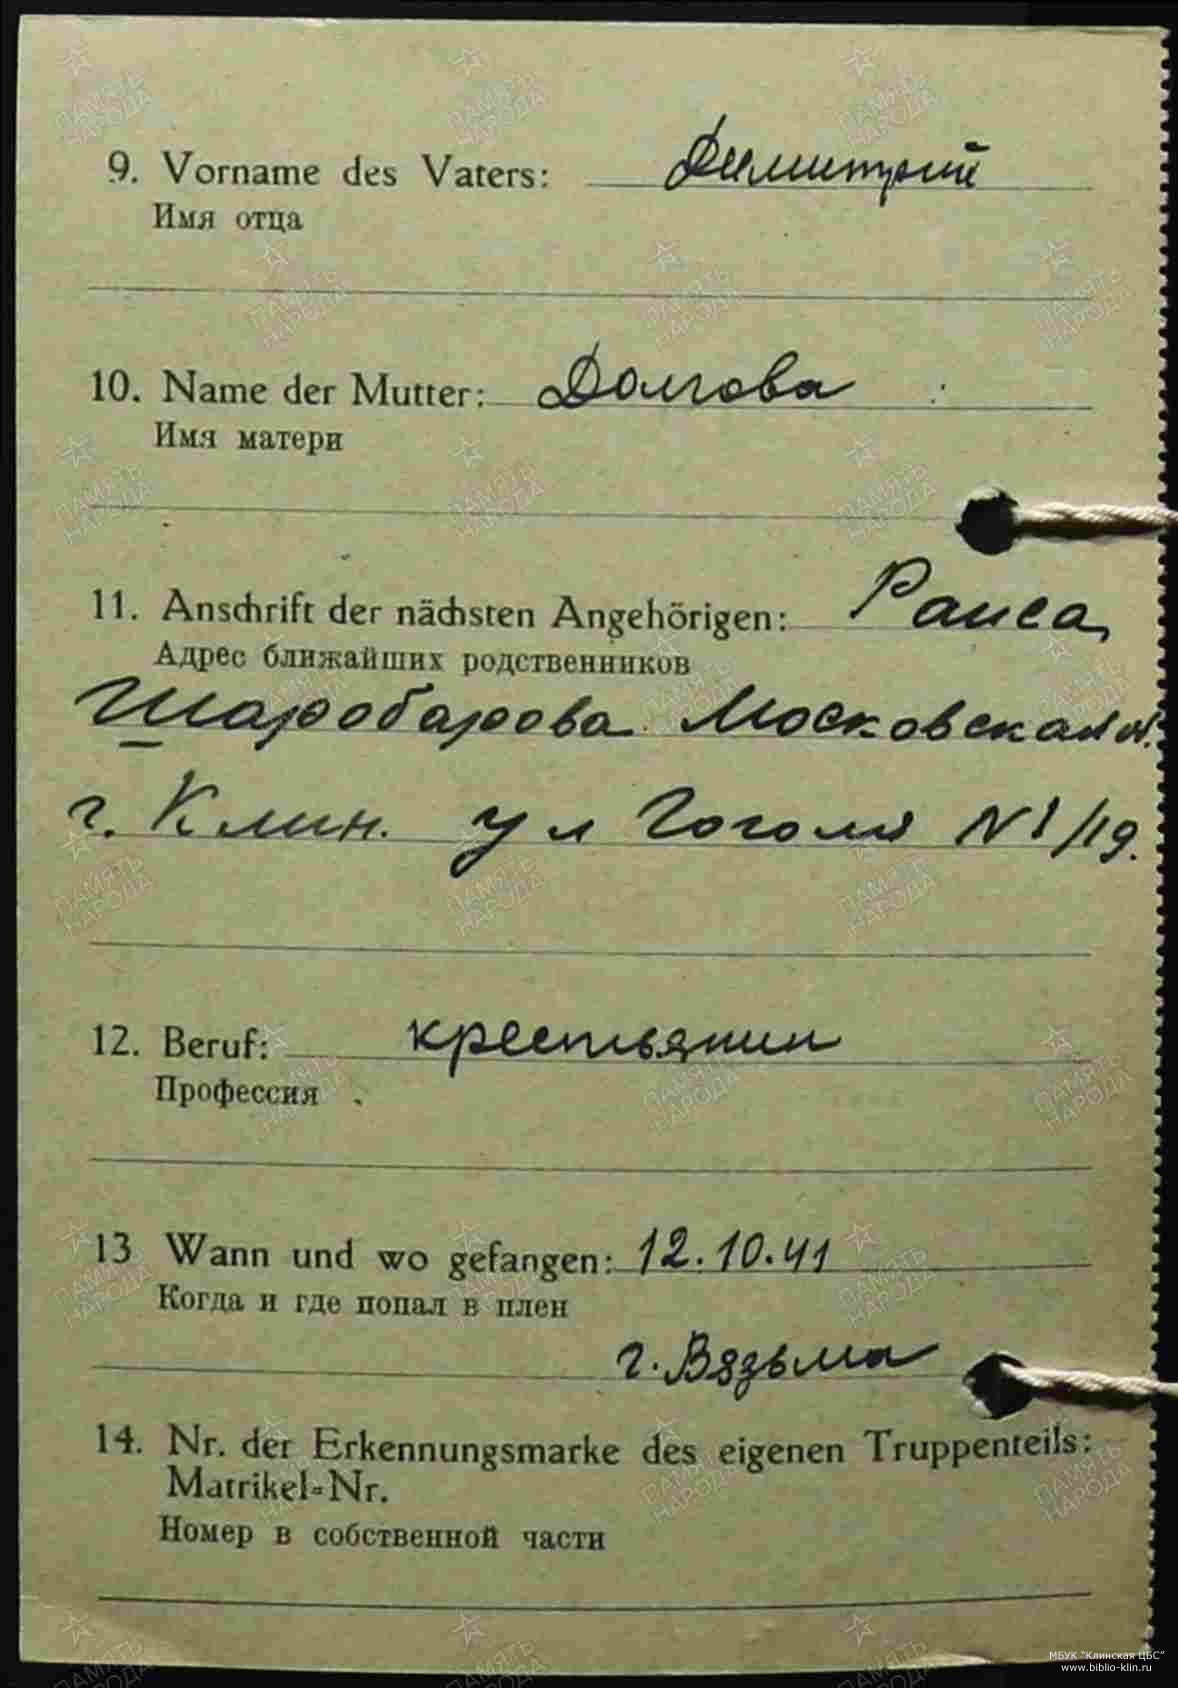 9. Vorname des Vaters: Димитрий
Имя отца
10. Name der Mutter: Долгова
Имя матери
11. Anschrift der nächsten Angehörigen: Раиса
Адрес ближайших родственников
Шаробарова Московская
г. Клин. ул Гоголя №1/19.
12. Beruf: крестьянин
Профессия
13 Wann und wo gefangen: 12.10.41
Когда и где попал в плен
г. Вязьма
14. Nr. der Erkennungsmarke des eigenen Truppenteils:
Matrikel=Nr.
Номер в собственной части
МБУК "Клинская ЦБС"
www.biblio-klin.ru
ПАМЯТЬ
НАРОДА